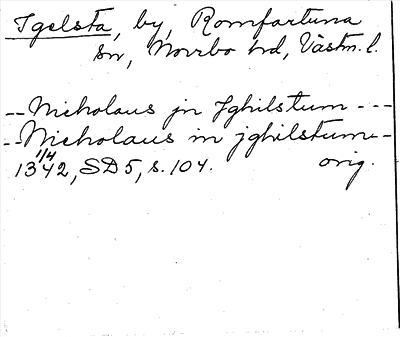 Igelsta, by, Romfartuna
sn, Norrbo hd, Västm. l.
-- Nicholaus jn Jghilstum ---
-- Nicholaus in jghilstum --
1/4
1342, SD 5, s. 104. orig.